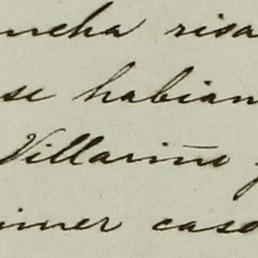 ncha risa
se habian
Villarino y
imer caso